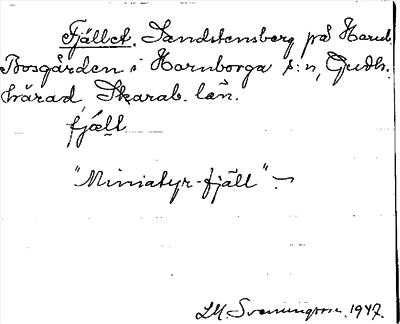 Fjället. Sandstensberg på Hornb.
Bosgården i Hornborga s:n, Gudh.
härad, Skarab. län.
fjäll
"Miniatyr-fjäll" –
LM Svenungsson. 1947.